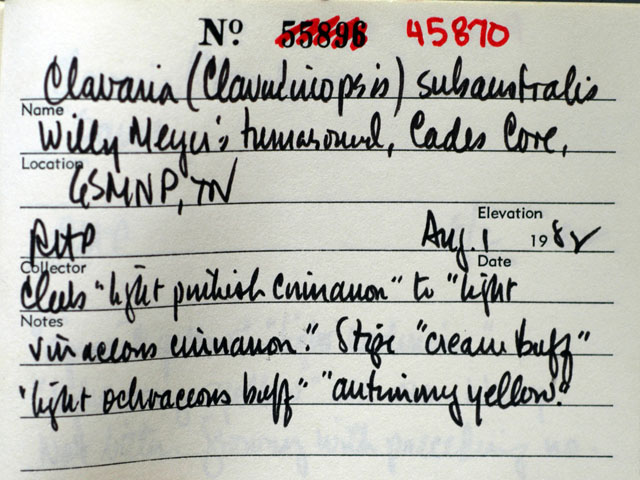 Nº 55896 45870
Clavaria (Clavulinopsis) subaustralis
Name
Willy Meyer's turnaround, Cades Cove,
Location
GSMNP, TN
Elevation
RHP Aug. 1 1982
Collector Date
Clubs "light pinkish cinnamon" to "light
Notes
vinaceous cinnamon." Stipe "cream buff"
"light ochraceous buff" "antimony yellow."